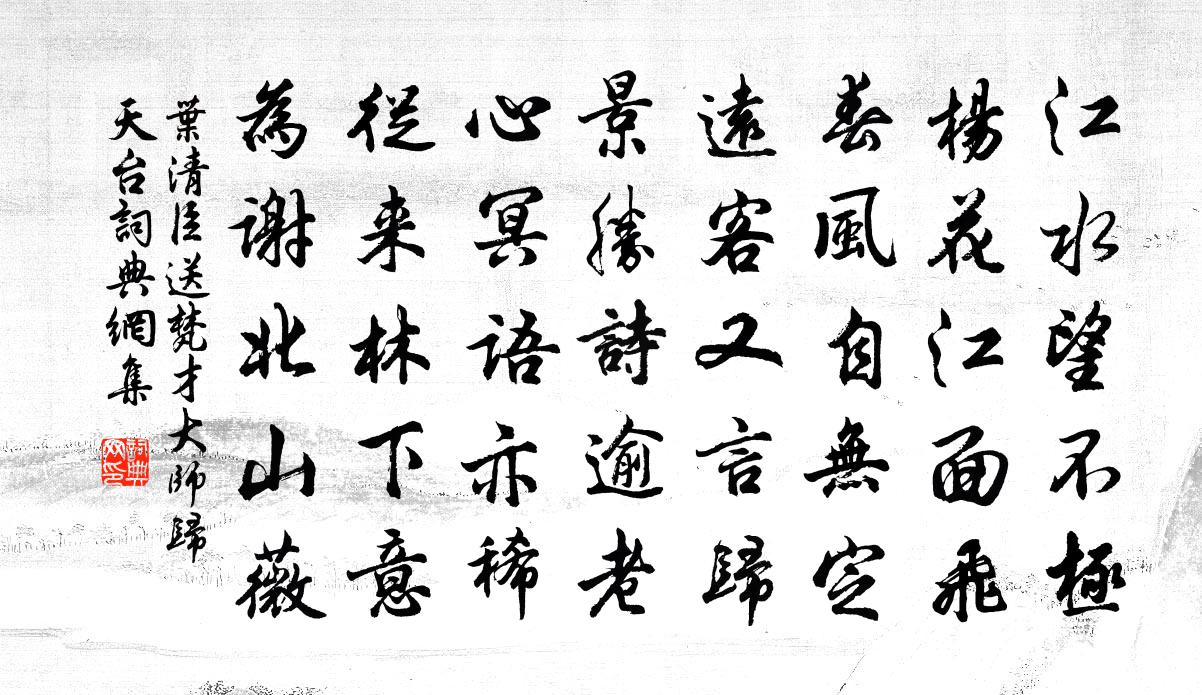 江水望不極
楊花江面飛
春風自無定
遠客又言歸
景勝詩逾老
心冥語亦稀
從来林下意
為謝北山薇
葉清臣送梵才大師歸
天台詞典網集
詞典網印